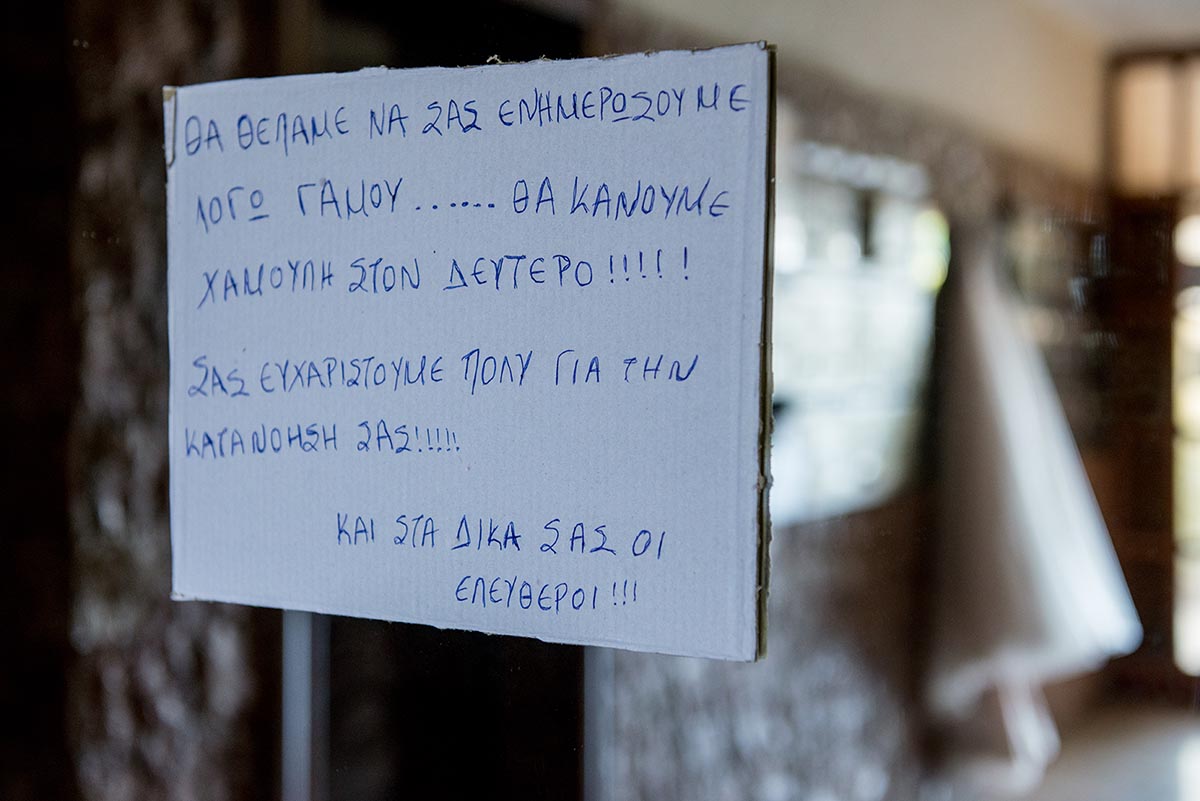 ΘΑ ΘΕΛΑΜΕ ΝΑ ΣΑΣ ΕΝΗΜΕΡΩΣΟΥΜΕ
ΛΟΓΩ ΓΑΜΟΥ....... ΘΑ ΚΑΝΟΥΜΕ
ΧΑΜΟΥΛΗ ΣΤΟΝ ΔΕΥΤΕΡΟ!!!!!
ΣΑΣ ΕΥΧΑΡΙΣΤΟΥΜΕ ΠΟΛΥ ΓΙΑ ΤΗΝ
ΚΑΤΑΝΟΗΣΗ ΣΑΣ!!!!!
ΚΑΙ ΣΤΑ ΔΙΚΑ ΣΑΣ ΟΙ
ΕΛΕΥΘΕΡΟΙ!!!